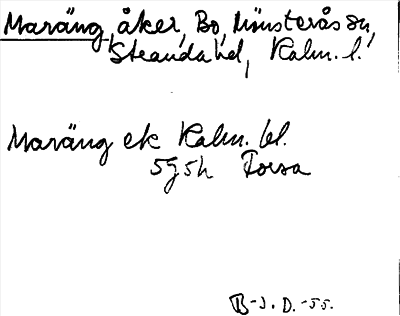 Maräng, åker, Bo, Mönsterås sn,
Stranda hd, Kalm. l.
Maräng ek Kalm. bl.
5g5h Torsa
B-J. D. -55.